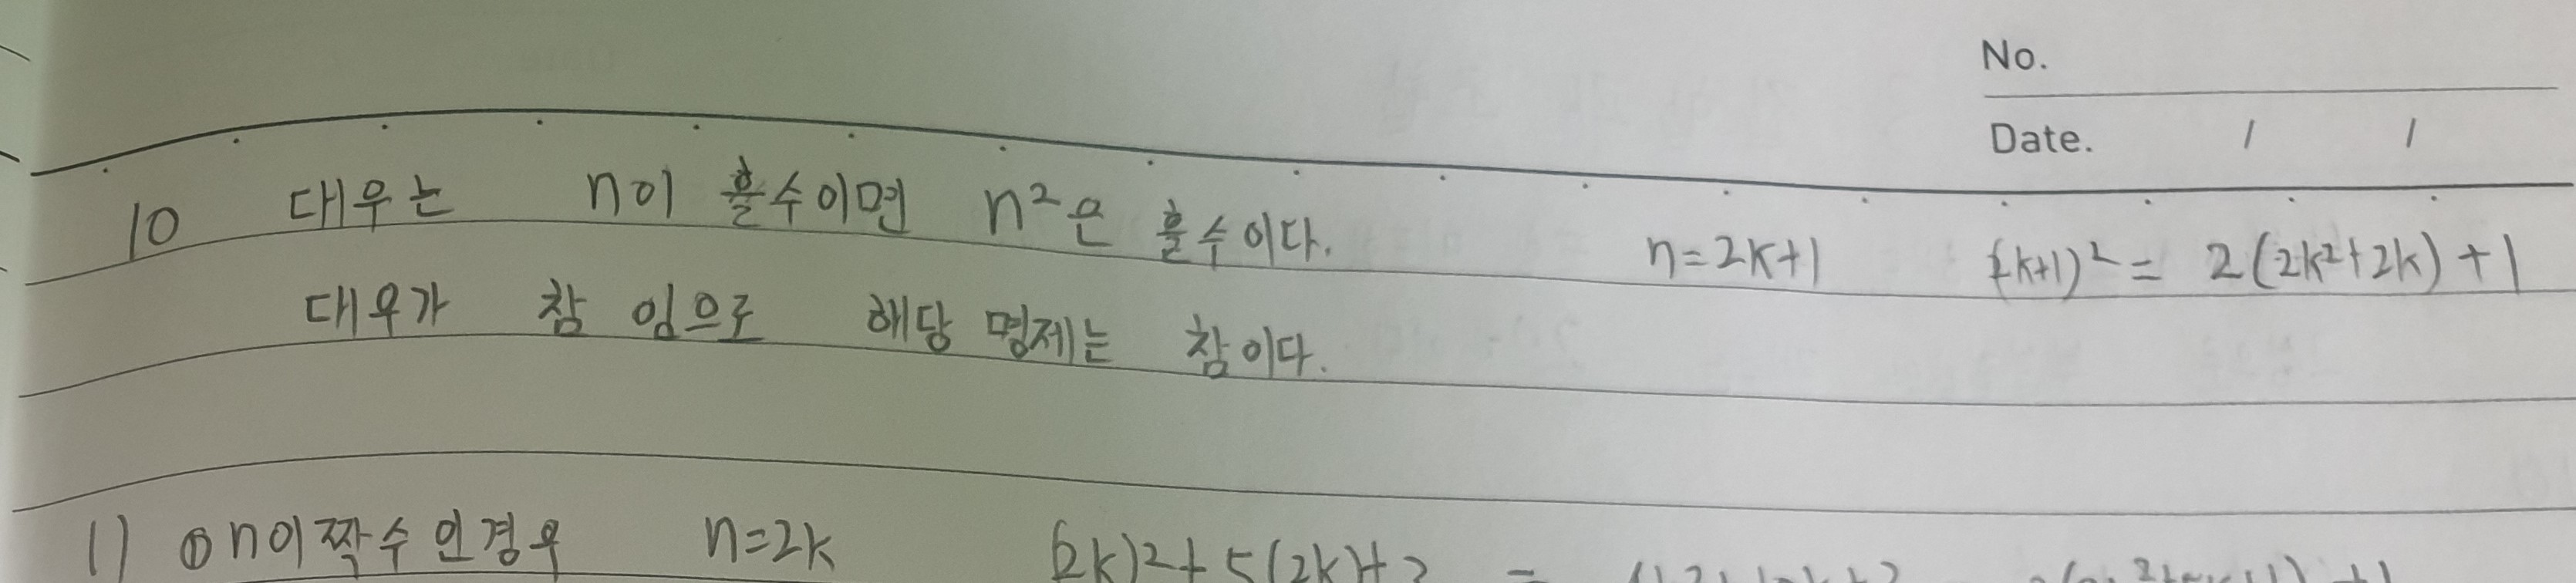 No.
Date. / /
10 대우는 n이 홀수이면 n²은 홀수이다. n=2k+1 (2k+1)² = 2(2k²+2k)+1
대우가 참 임으로 해당 명제는 참이다.
11 ① n이 짝수인경우 n=2k (2k)²+5(2k)+3 =